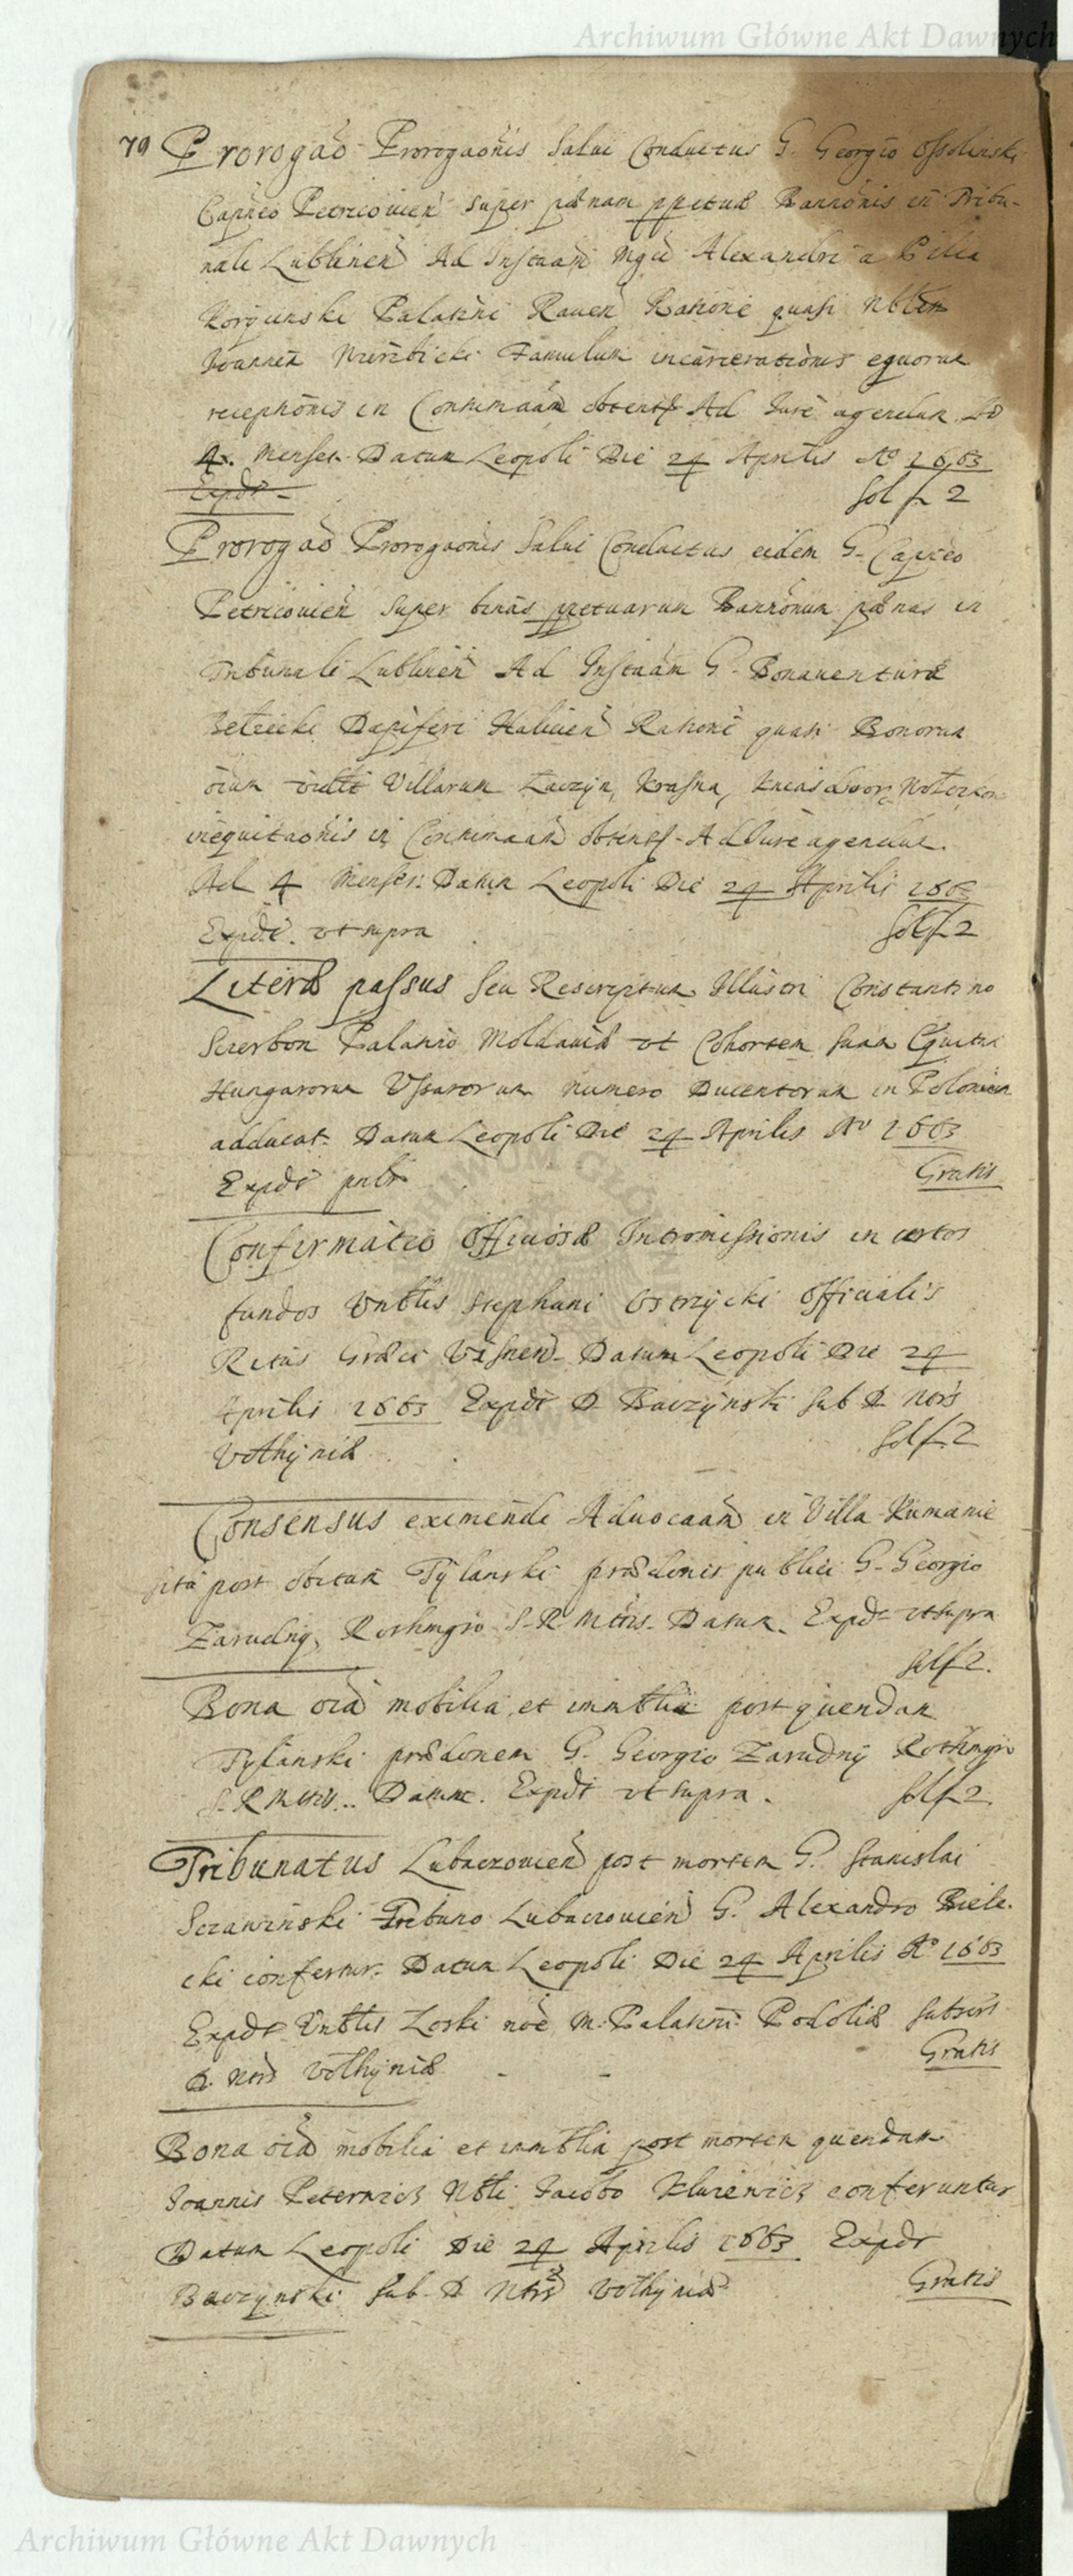 Archiwum Główne Akt Dawnych
79 Prorogaō Prorogaōnis Salui Conductus G. Georgio Ossolinski
Capneo Petricouien Super pænam ppetuæ Bannōnis in Tribu-
nali Lublinen Ad Instaām Mgci Alexandri a Pilca
Korycinski Palatini Rauen Ratione quasi Nblem
Joannem Famulum incarcerationis equorum
receptionis in Contumaām obtent Ad Jure agendum Ad
4. Menses. Datum Leopoli Die 24 Aprilis Aº 1663
Expdt Sol f 2
Prorogaō Prorogaōnis Salui Conductus eidem G. Capneo
Petricouien Super binas ppetuarum Bannōnum pænas in
Tribunali Lublinen Ad Instaām G. Bonauenturæ
Belzecki Dapiferi Halicien Ratione quasi Bonorum
oium Villarum Krasna,
inequitaōnis in Contumaām obtent. Ad Jure agendum.
Ad 4 Menses. Datum Leopoli Die 24 Aprilis 1663
Expdt. vt supra Sol f 2
Literæ passus Seu Rescriptum Illustri Constantino
Szczerban Palatino Moldauiæ vt Cohortem suam Equitum
Hungarorum Vssarorum numero Ducentorum in Poloniam
adducat. Datum Leopoli Die 24 Aprilis Aº 1663
Expdt Gratis
Confirmatio Officiosæ Intromissionis in certos
fundos Vnblis Stephani Ostrzycki Officialis
Ritus Græci Visnen. Datum Leopoli Die 24
Aprilis 1663 Expdt D Baczynski Sub D Ntris
Volhyniæ Sol f. 2
Consensus eximendi Aduocaām in Villa Kumanie
sita post obitum Tylanski prædonis publici G. Georgio
Zarudny Rothmgro S. R. Mttis. Datum. Expdt vt supra
Sol f 2.
Bona oia mobilia et immblia post quendam
Tylanski prædonem G. Georgio Zarudny Rothmgro
S. R. Mttis.. Datum. Expdt vt supra. Sol f 2.
Tribunatus Lubaczouien post mortem G. Stanislai
Sczawinski Tribuno Lubaczouien G. Alexandro Biele-
cki confertur. Datum Leopoli Die 24 Aprilis Aº 1663
Expdt Vnblis Zorski noē M. Palatini Podoliæ
D. Ntris Volhyniæ Gratis
Bona oia mobilia et immblia post mortem quendam
Joannis Peternicz Nbli Jacobo conferuntur
Datum Leopoli Die 24 Aprilis 1663 Expdt
Baczynski Sub D Ntris Volhyniæ Gratis
Archiwum Główne Akt Dawnych